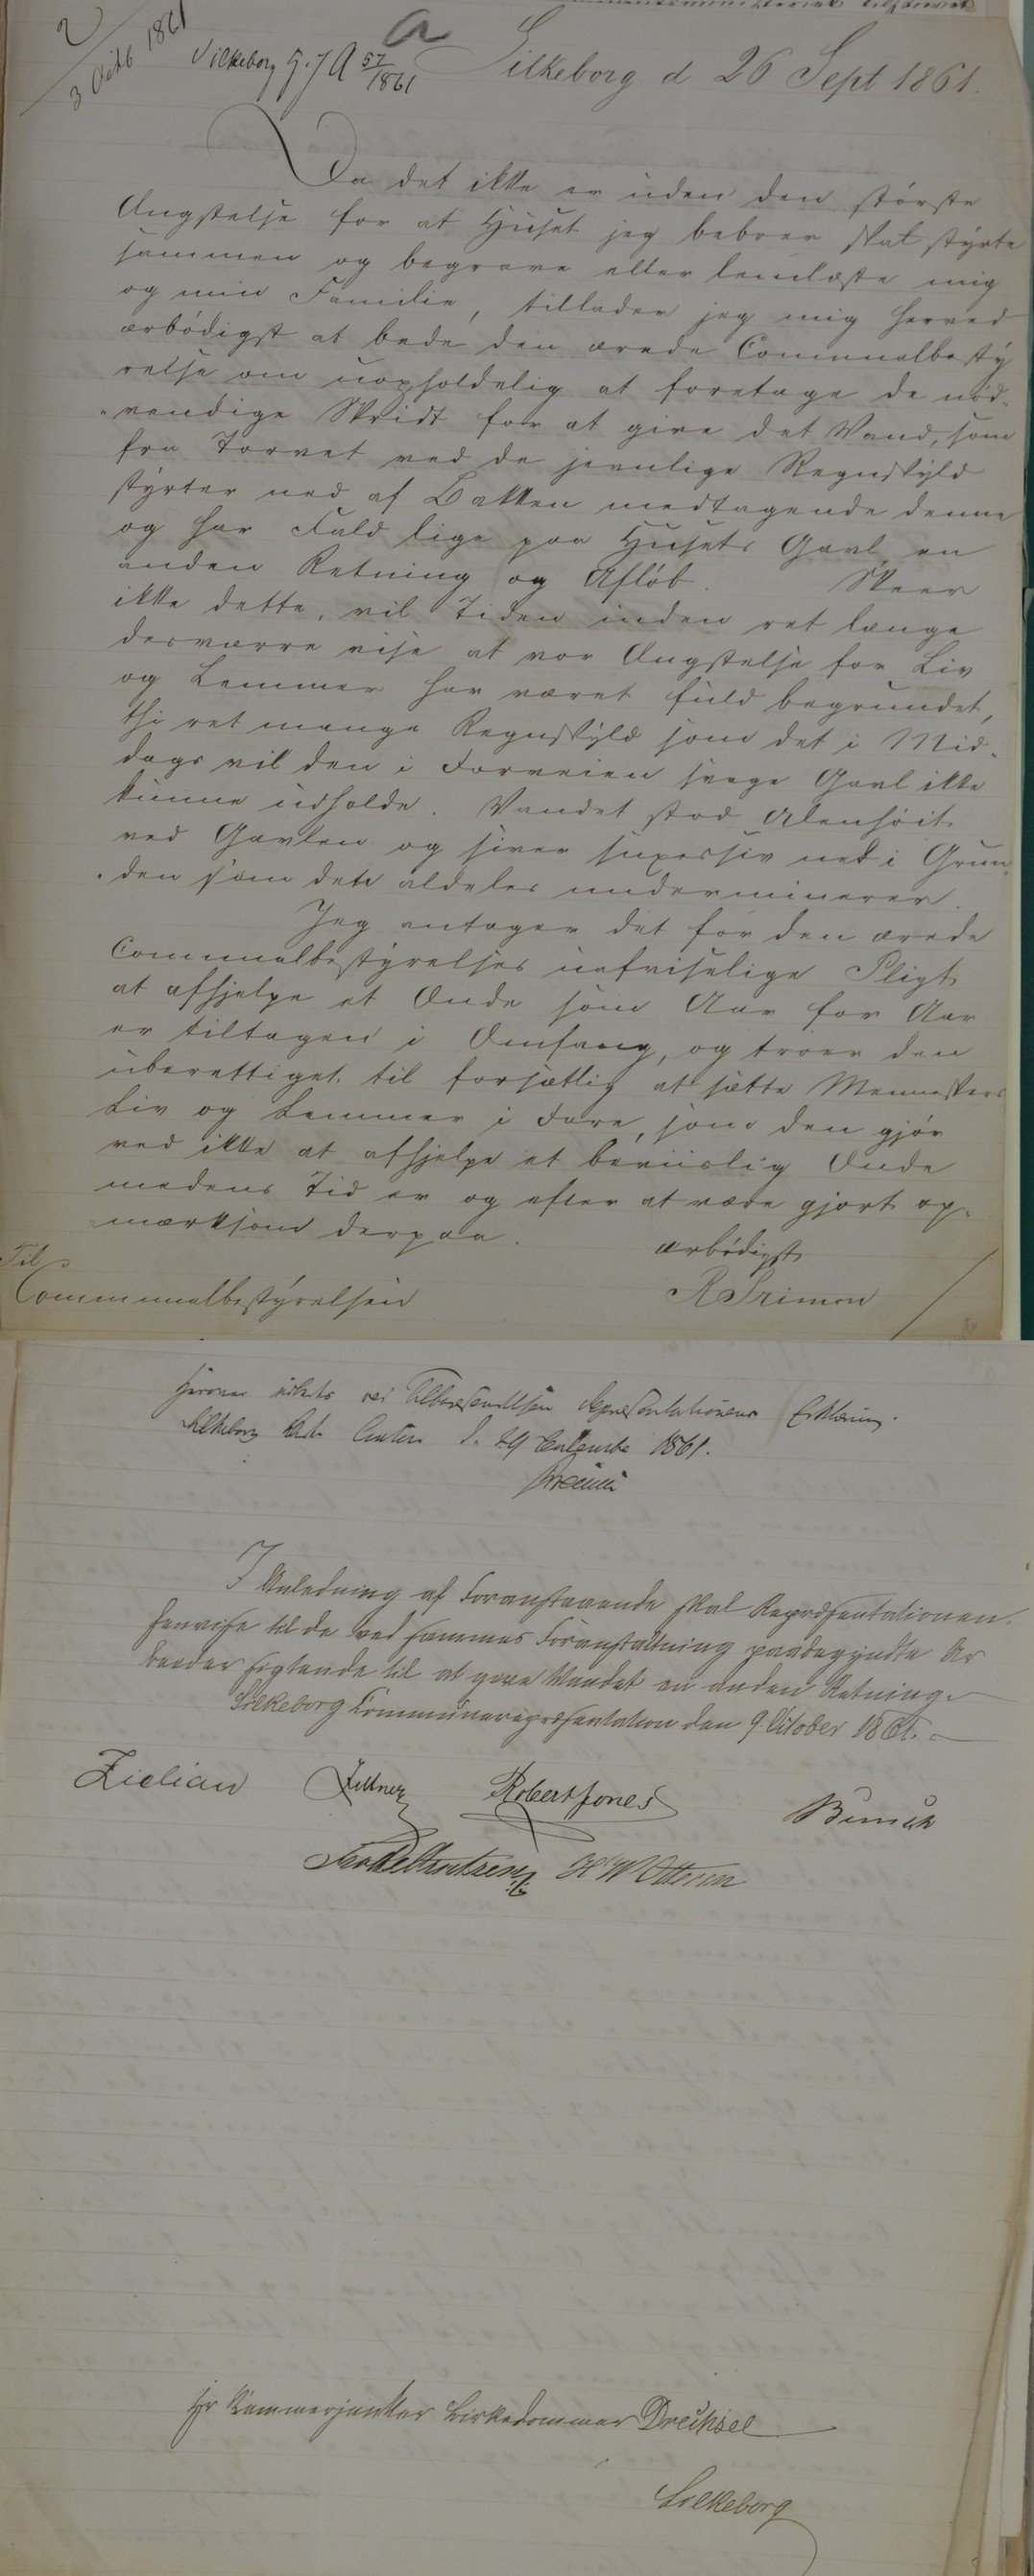 2
3 Octb 1861
Silkeborg G. J A 57/1861
a
Silkeborg d 26 Sept 1861.
Da det ikke er uden den störste
Ængstelse for at Huset jeg beboer skal styrte
sammen og begrave eller lemlæste mig
og min Familie, tillader jeg mig herved
ærbödigst at bede den ærede Communalbesty
relse om uopholdelig at foretage de nöd-
vendige Skridt for at give det Vand, som
fra Torvet ved de jevnlige Regnskyld
styrter ned af Bakken medtagende denne
og har Fald lige paa Husets Gavl en
anden Retning og Aflöb. Skeer
ikke dette, vil Tiden inden ret længe
desværre vise at vor Ængstelse for Liv
og Lemmer har været fuld begrundet,
thi ret mange Regnskyld som det i Mid-
dags vil den i Forveien svage Gavl ikke
kunne udholde. Vandet stod Alenhöit
ved Gavlen og siver successiv ned i Grun
den som det aldeles underminerer.
Jeg antager det for den ærede
Communalbestyrelses uafviselige Pligt
at afhjelpe et Onde som Aar for Aar
er tiltagen i Omfang, og troer den
uberettiget til forsætlig at sætte Menneskers
Liv og Lemmer i Fare, som den gjör
ved ikke at afhjelpe et beviislig Onde
medens Tid er og efter at være gjort op-
mærksom derpaa.
ærbödigst
Til
Communalbestyrelsen
Herover udbedes ved Tilbagesendelsen Repræsentationens Erklæring.
Silkeborg d. 29 September 1861.
I Anledning af Foranstaaende skal Repræsentationen
henvise til de ved sammes Foranstaltning paabegyndte Ar
beider sigtende til at give Vandet en anden Retning.
Silkeborg Communerepræsentation den 9. October 1861.
Zielian Zeltner Robert Jones Bunch
H W Ottesen
Hr Kammerjunker Birkedommer Drechsel
Silkeborg